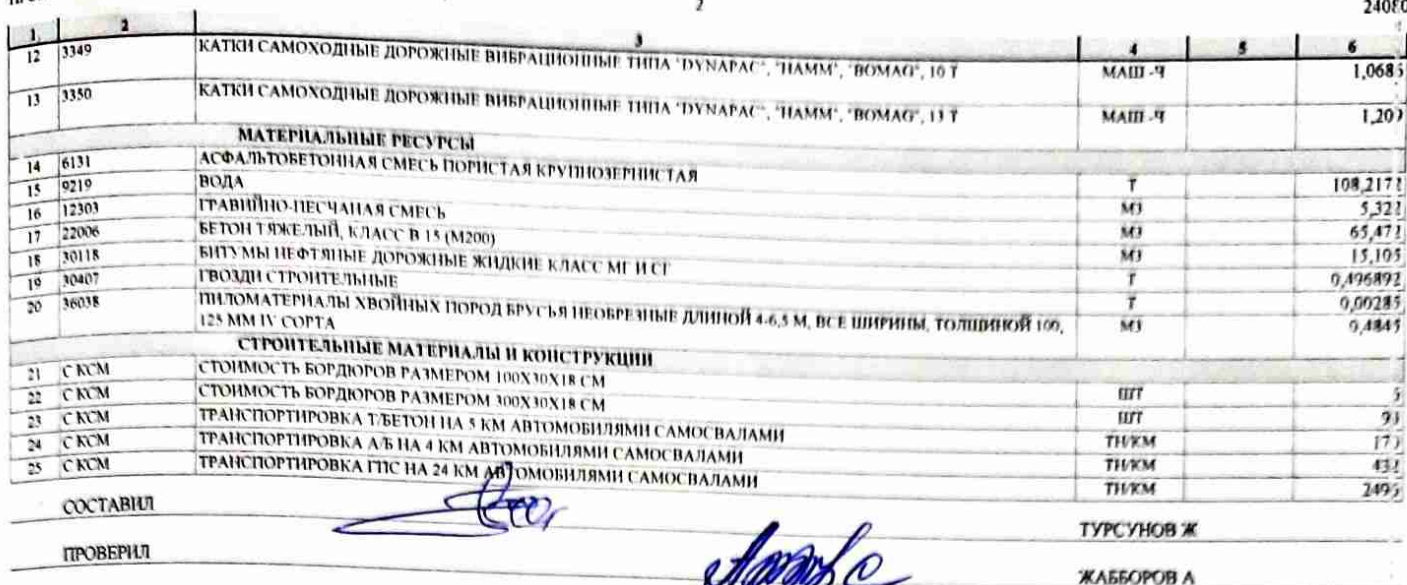 2
1. 2 3 4 5 6
12 3349 КАТКИ САМОХОДНЫЕ ДОРОЖНЫЕ ВИБРАЦИОННЫЕ ТИПА "DYNAPAC", "HAMM", "BOMAG", 10 Т МАШ-Ч 1,0685
13 3350 КАТКИ САМОХОДНЫЕ ДОРОЖНЫЕ ВИБРАЦИОННЫЕ ТИПА "DYNAPAC", "HAMM", "BOMAG", 13 Т МАШ-Ч
МАТЕРИАЛЬНЫЕ РЕСУРСЫ
14 6131 АСФАЛЬТОБЕТОННАЯ СМЕСЬ ПОРИСТАЯ КРУПНОЗЕРНИСТАЯ Т
15 9219 ВОДА М3
16 12303 ГРАВИЙНО-ПЕСЧАНАЯ СМЕСЬ М3
17 22006 БЕТОН ТЯЖЕЛЫЙ, КЛАСС В 15 (М200) М3 15,105
18 30118 БИТУМЫ НЕФТЯНЫЕ ДОРОЖНЫЕ ЖИДКИЕ КЛАСС МГ И СГ Т
19 30407 ГВОЗДИ СТРОИТЕЛЬНЫЕ Т 0,00285
20 36038 ПИЛОМАТЕРИАЛЫ ХВОЙНЫХ ПОРОД БРУСЬЯ НЕОБРЕЗНЫЕ ДЛИНОЙ 4-6,5 М, ВСЕ ШИРИНЫ, ТОЛЩИНОЙ 100, М3 0,4845
125 ММ IV СОРТА
СТРОИТЕЛЬНЫЕ МАТЕРИАЛЫ И КОНСТРУКЦИИ
21 С КСМ СТОИМОСТЬ БОРДЮРОВ РАЗМЕРОМ 100Х30Х18 СМ ШТ
22 С КСМ СТОИМОСТЬ БОРДЮРОВ РАЗМЕРОМ 300Х30Х18 СМ ШТ
23 С КСМ ТРАНСПОРТИРОВКА Т/БЕТОН НА 5 КМ АВТОМОБИЛЯМИ САМОСВАЛАМИ ТН/КМ
24 С КСМ ТРАНСПОРТИРОВКА А/Б НА 4 КМ АВТОМОБИЛЯМИ САМОСВАЛАМИ ТН/КМ
25 С КСМ ТРАНСПОРТИРОВКА ГПС НА 24 КМ АВТОМОБИЛЯМИ САМОСВАЛАМИ ТН/КМ
СОСТАВИЛ ТУРСУНОВ Ж
ПРОВЕРИЛ ЖАББОРОВ А